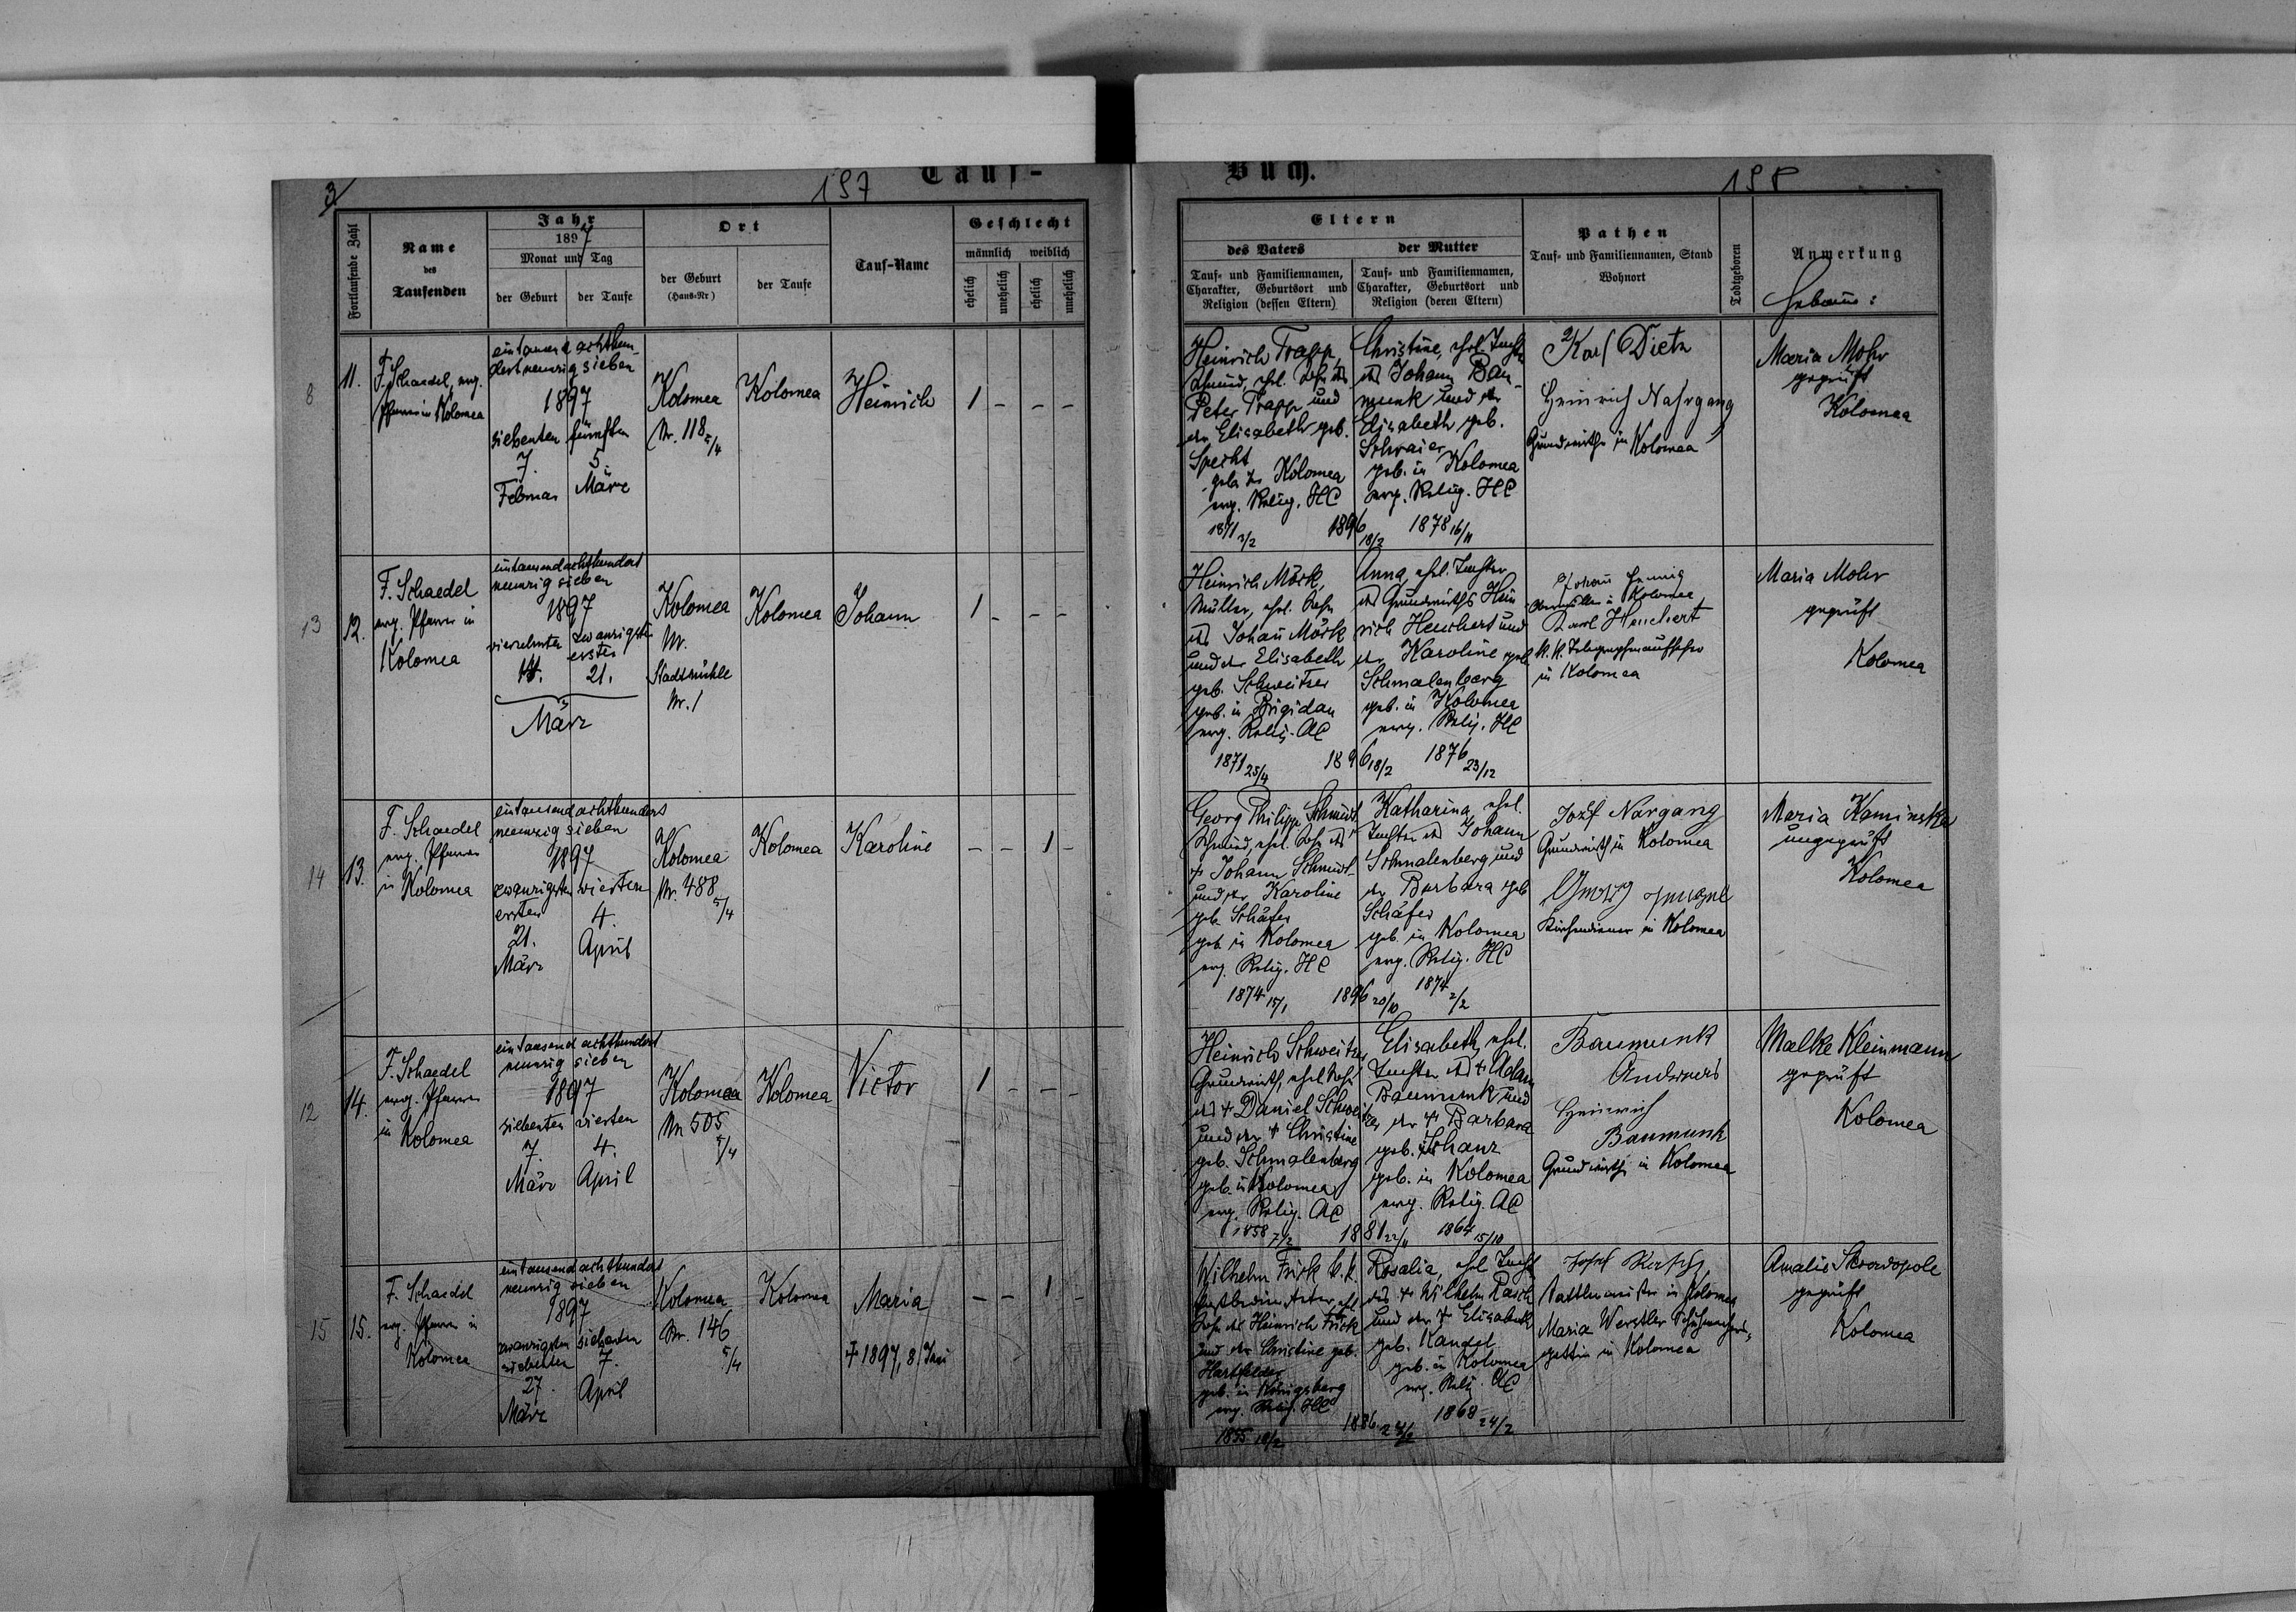 3/
197
Tauf-
Fortlaufende Zahl
Name
des
Taufenden
Jahr
1897
Monat und Tag
der Geburt
der Taufe
Ort
der Geburt
(Haus-Nr)
der Taufe
Tauf-Name
Geschlecht
männlich
weiblich
ehelich
unehelich
ehelich
unehelich
8
11.
F. Schaedel, evg.
Pfarrer in Kolomea
eintausend achthun-
dert neunzig sieben
1897
siebenten
7.
Februar
fünften
5.
März
Kolomea
Nr. 118 5/4
Kolomea
Heinrich
1 - - -
13
12.
F. Schaedel
evg. Pfarrer in
Kolomea
eintausendachthundert
neunzig sieben
1897
vierzehnten
14.
zwanzigsten
ersten
21.
März
Kolomea
Nr.
Stadtmühle
Nr. 1
Kolomea
Johann
1 - - -
14
13.
F. Schaedel
evg. Pfarrer
in Kolomea
eintausend achthundert
neunzig sieben
1897
zwanzigsten
ersten
21.
März
vierten
4.
April
Kolomea
Nr. 488
5/4
Kolomea
Karoline
- - 1 -
12
14.
F. Schaedel
evg. Pfarrer
in Kolomea
eintausend achthundert
neunzig sieben
1897
siebenten
7.
März
vierten
4.
April
Kolomea
Nr. 505
5/4
Kolomea
Victor
1 - - -
15
15.
F. Schaedel
evg. Pfarrer in
Kolomea
eintausend achthundert
neunzig sieben
1897
zwanzigsten
siebenten
27.
März
siebenten
7.
April
Kolomea
Nr. 146
5/4
Kolomea
Maria
† 1897, 8/Juni
- - 1 -
Buch.
198
Eltern
des Vaters
Tauf- und Familiennamen,
Charakter, Geburtsort und
Religion (dessen Eltern)
der Mutter
Tauf- und Familiennamen,
Charakter, Geburtsort und
Religion (deren Eltern)
Pathen
Tauf- und Familiennamen, Stand
Wohnort
Todtgeboren
Anmerkung
Hebamme:
Heinrich Trapp,
Schmied, ehel. Sohn des
Peter Trapp und
der Elisabeth geb.
Specht
geb. in Kolomea
evg. Relig. HC
1871 2/2
1896 18/2
Christine, ehel. Tochter
des Johann Bau-
munk und der
Elisabeth geb.
Schraier
geb. in Kolomea
evg. Relig. HC
1878 16/11
Karl Dietz
Heinrich Nahrgang
Grundwirthe in Kolomea
Maria Mohr
geprüft
Kolomea
Heinrich Mörk,
Müller, ehel. Sohn
des Johann Mörk
und der Elisabeth
geb. Schweitzer
geb. in Brigidau
evg. Relig. AC
1871 25/4
1896 18/2
Anna, ehel. Tochter
des Grundwirths Hein
rich Heuchert und
der Karoline geb.
Schmalenberg
geb. in Kolomea
evg. Relig. HC
1876 23/12
Johann Hennig
Obermüller in Kolomea
Karl Heuchert
k. k. Telegraphenaufseher
in Kolomea
Maria Mohr
geprüft
Kolomea
Georg Philipp Schmidt
Schmied, ehel. Sohn des
† Johann Schmidt
und der Karoline
geb. Schäfer
geb. in Kolomea
evg. Relig. HC
1874 15/1
1896 20/10
Katharina, ehel.
Tochter des Johann
Schmalenberg und
der Barbara geb
Schäfer
geb. in Kolomea
evg. Relig. HC
1874 2/2
Jozf Nargang
Grundwirth in Kolomea
Georg
Kirchendiener in Kolomea
Maria Kaminska
ungeprüft
Kolomea
Heinrich Schweitzer
Grundwirth, ehel. Sohn
des † Daniel Schweitzer
und der † Christine
geb. Schmalenberg
geb. in Kolomea
evg. Relig. AC
1858 7/2
1881 22/11
Elisabeth, ehel.
Tochter des † Adam
Baumunk und
der † Barbara
geb. Schanz
geb. in Kolomea
evg. Relig. AC
1864 15/10
Baumunk
Andreas
Heinrich
Baumunk
Grundwirthe in Kolomea
Malke Kleinmann
geprüft
Kolomea
Wilhelm Frick k. k.
ehel.
Sohn des Heinrich Frick
und der Christine geb.
Hartfelder
geb. in Königsberg
evg. Relig. HC
1855 18/2
1886 24/2
Rosalia, ehel. Tochter
des † Wilhelm Rasch
und der † Elisabeth
geb. Kandel
geb. in Kolomea
evg. Relig. AC
1868 24/2
Josef
Sattlermeister in Kolomea
Maria Werstler Schuhmachers-
gattin in Kolomea
Amalie Skowopole
geprüft
Kolomea